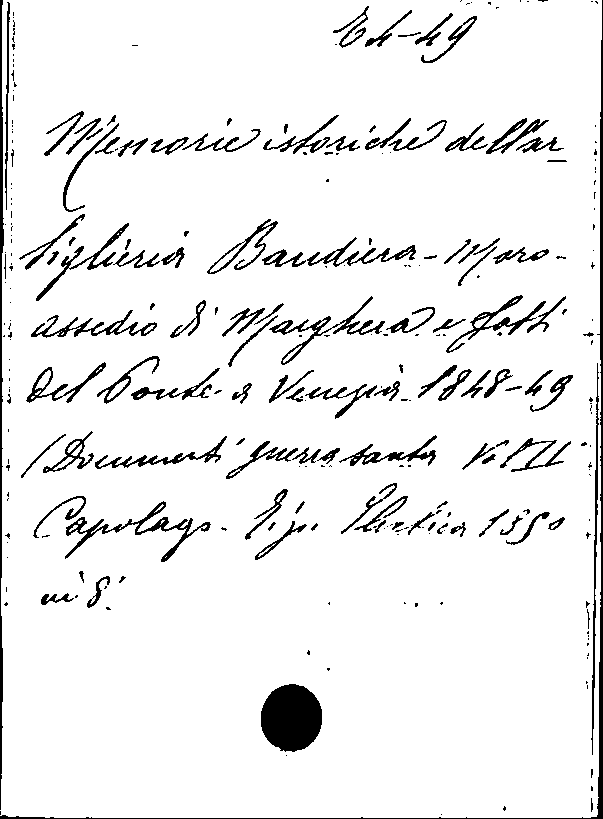 E4-49
Memorie istoriche dell'ar
tiglieria Bandiera-Moro-
assedio di Marghera e fatti
del Ponte a Venezia 1848-49
(Documenti guerra santa Vol II
Capolago. Tip. Elvetica 1850
in 8.